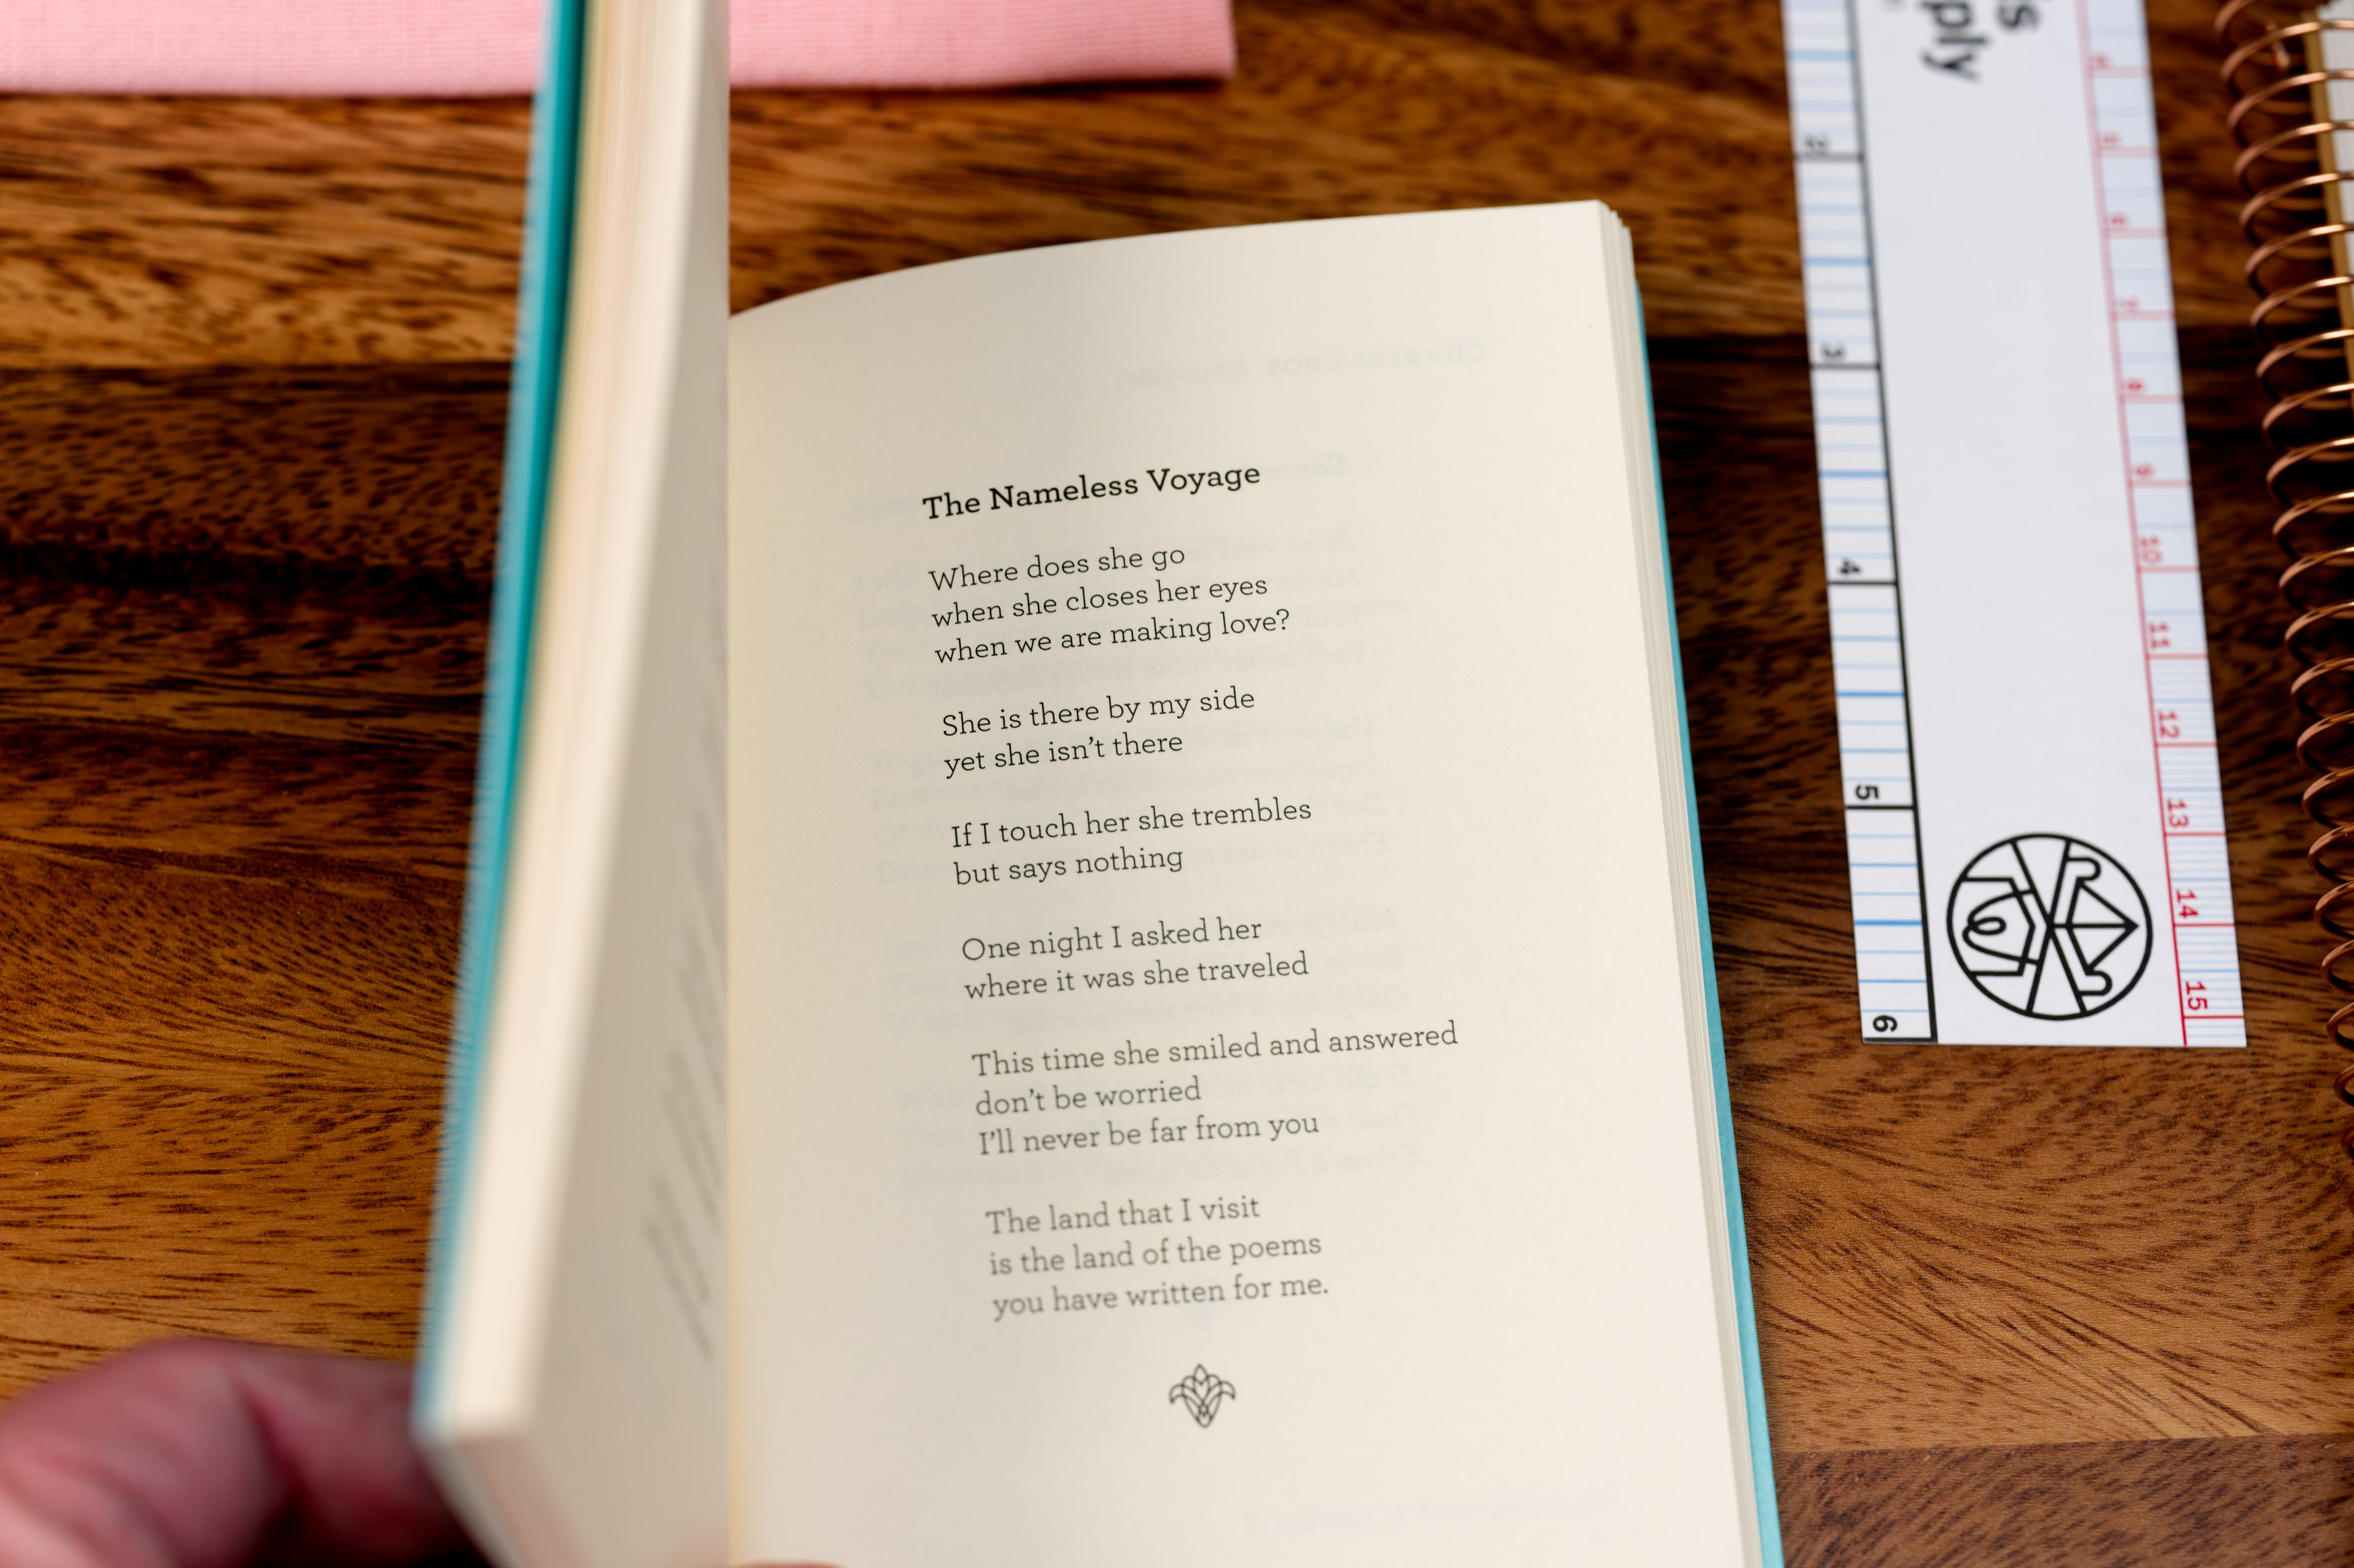 The Nameless Voyage
Where does she go
when she closes her eyes
when we are making love?
She is there by my side
yet she isn't there
If I touch her she trembles
but says nothing
One night I asked her
where it was she traveled
This time she smiled and answered
don't be worried
I'll never be far from you
The land that I visit
is the land of the poems
you have written for me.
ply
2
3
4
5
6
6
7
8
9
10
11
12
13
14
15